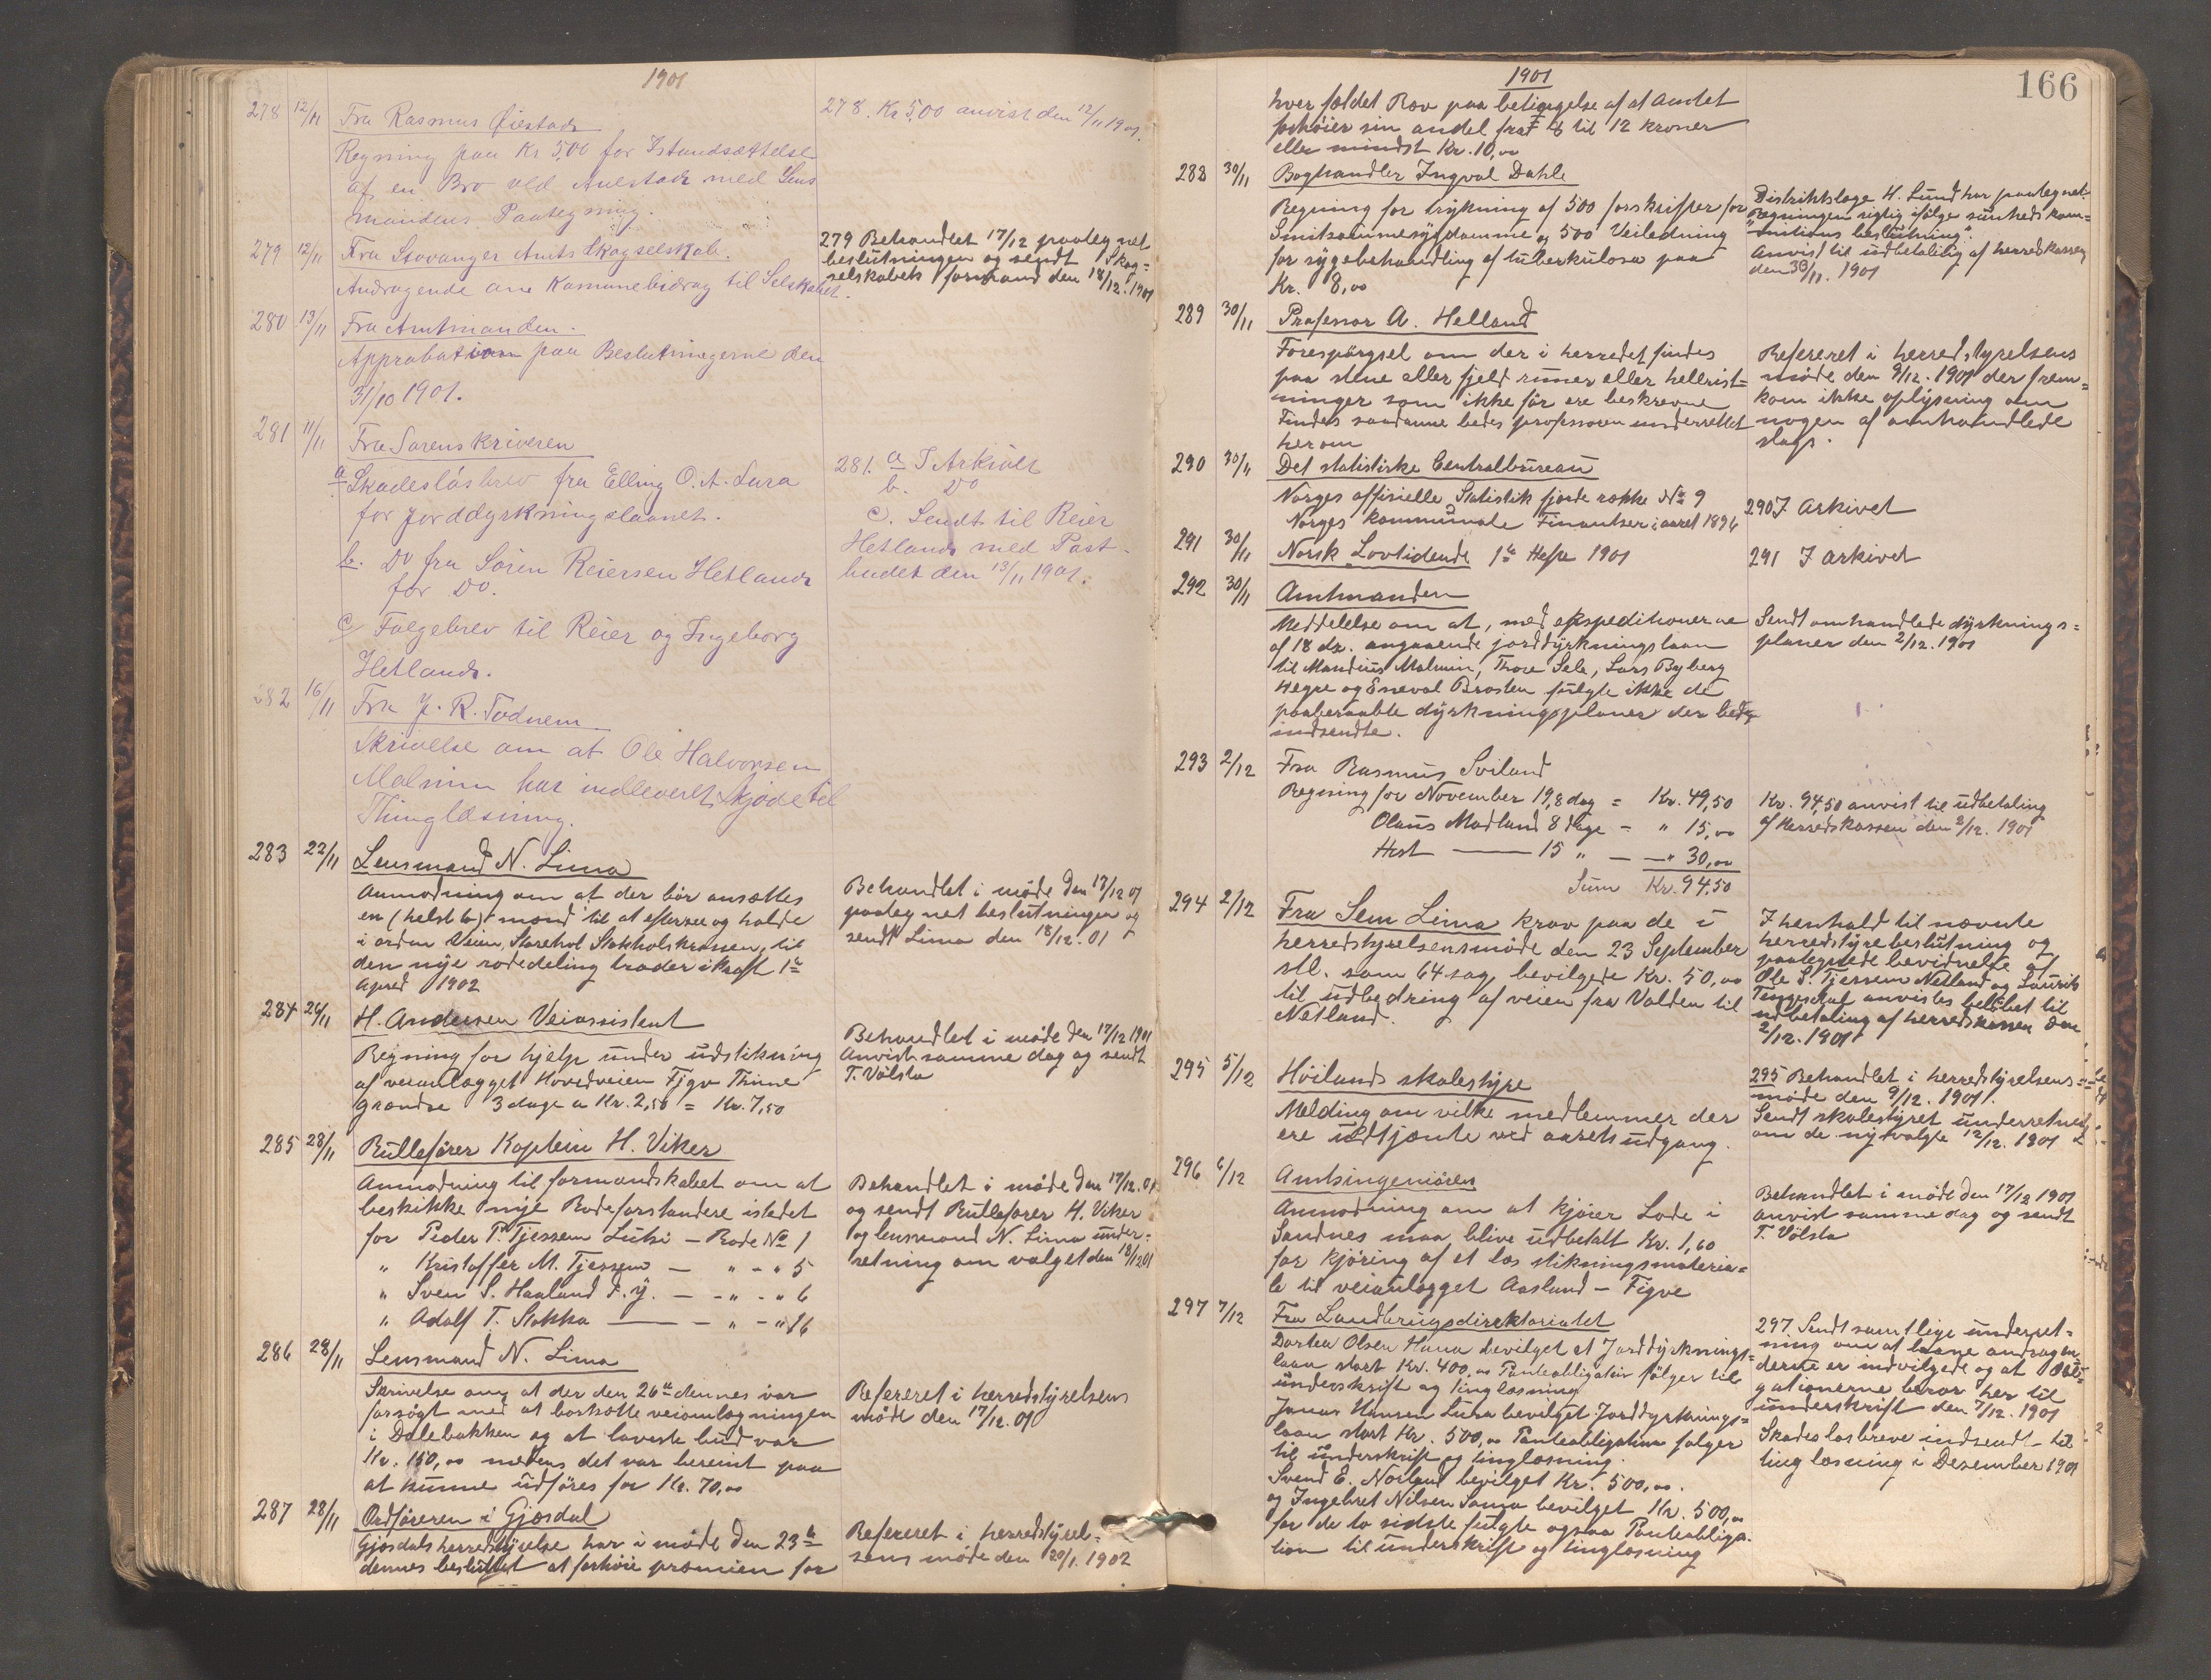 1901
278 12/11 Fra Rasmus Øiestad
Regning paa Kr 5,00 for Istandsættelse
af en Bro ved Auestad med Lens
mandens Paategning.
278. Kr 5,00 anvist den 12/11 1901.
279 12/11 Fra Stavanger Amts Skogselskab.
Andragende om Komunebidrag til Selskabet.
279 Behandlet 17/12 paategnet
beslutningen og sendt Skog=
selskabets formand den 18/12. 1901
280 13/11 Fra Amtmanden.
Approbation paa Beslutningerne den
31/10 1901.
281 11/11 Fra Sorenskriveren
a Skadesløsbrev fra Elling O. A. Lura
for Jorddyrkningslaanet.
b. Do fra Søren Reiersen Hetland
for Do.
c Følgebrev til Reier og Ingeborg
Hetland.
281. a I Arkivet
b. Do
c. Sendt til Reier
Hetland med Post
budet den 13/11 1901.
282 16/11 Fra J. R. Todnem
Skrivelse om at Ole Halvorsen
Malmin har indleveret Skjøde til
Thinglæsning.
283 22/11 Lensmand N. Lima
Anmodning om at der bør ansættes
en (helst to) mand til at efterse og holde
i orden Veien, Starehol Stokholskrossen, til
den nye rodedeling træder i kraft 1ste
April 1902
Behandlet i møde den 17/12 01
paategnet beslutningen og
sendt Lima den 18/12. 01
284 26/11 H. Andersen Veiassistent
Regning for hjelp under udstikning
af veianlægget Hovedveien Figve Thime
grændse 3 dage a Kr. 2,50 = Kr. 7,50
Behandlet i møde den 17/12 1901
Anvist samme dag og sendt
T. Vølstad
285 28/11 Rullefører Kaptein H. Viker
Anmodning til formandskabet om at
beskikke nye Rodeforstandere istedet
for Peder P. Tjessem Lutsi – Rode No 1
" Kristoffer M. Tjessem – " - " 5
" Sven S. Haaland d. y. – - " - " 6
" Adolf T. Stokka – - " - " 16
Behandlet i møde den 17/12. 01
og sendt Rullefører H. Viker
og lensmand N. Lima under=
retning om valget den 18/12 01
286 28/11 Lensmand N. Lima
Skrivelse om at der den 26de dennes var
forsøgt med at bortsætte veiomlægningen
i Dalebakken og at laveste bud var
Kr. 150,00 medens det var beremt paa
at kunne udføres for Kr. 70,00
Refereret i herredstyrelsens
møde den 17/12. 01
287 28/11 Ordføreren i Gjesdal
Gjesdals herredstyrelse har i møde den 23de
dennes besluttet at forhøie præmien for
Refereret i herredstyrel=
sens møde den 20/1. 1902
166
1901
hver fældet Ræv paa betingelse af at Amtet
forhøier sin andel fra 8 til 12 kroner
eller mindst Kr. 10,00
288 30/11 Boghandler Ingval Dahle
Regning for trykning af 500 forskrifter for
Smitsommesygdomme og 500 Veiledning
for sygebehandling af tuberkulose paa
Kr. 8,00
Distriktslæge H. Lund har paategnet
Regningen rigtig ifølge sunhedskom=
"mitions beslutning".
Anvist til udbetaling af herredkassen
den 30/11. 1901
289 30/11 Professor A. Helland
Forespørgsel om der i herredet findes
paa stene eller fjeld runer eller hellerist=
ninger som ikke før ere beskrevne
Findes saadanne bedes professoren underrettet
herom
Refereret i herredstyrelsens
møde den 9/12. 1901 der frem=
kom ikke oplysning om
nogen af omhandlede
slags.
290 30/11 Det statistiske Centralbureau
Norges officielle Statistik fjerde række No 9
Norges kommunale Finantser i aaret 1896
290 I Arkivet
291 30/11 Norsk Lovtidende 1ste Hefte 1901
291 I arkivet
292 30/11 Amtmanden
Meddelelse om at, med ekspeditionerne
af 18 ds. angaaende jorddyrkningslaan
til Mandius Malmin, Thore Sele, Lars Byberg
Hegre og Eneval Brosten fulgte ikke de
paaberaabte dyrkningsplaner der bedes
indsendte.
Sendt omhandlede dyrknings=
planer den 2/12. 1901
293 2/12 Fra Rasmus Sviland
Regning for November 19,8 dag = Kr. 49,50
Olaus Madland 8 dage – " 15,00
Hest – 15 " – – " 30,00
Sum Kr. 94,50
Kr. 94,50 anvist til udbetaling
af Herredskassen den 2/12. 1901
294 2/12 Fra Sem Lima krav paa de i
herredstyrelsensmøde den 23 September
stl. som 64 sag, bevilgede Kr. 50,00
til udbedring af veien fra Valden til
Netland.
I henhold til nævnte
herredstyrebeslutning og
paategnede bevidnelse af
Ole S. Tjessem Netland og Laurits
anvistes beløbet til
udbetaling af herredskassen den
2/12. 1901
295 5/12 Høilands skolestyre
Melding om vilke medlemmer der
ere udtjente ved aarets udgang.
295 Behandlet i herredstyrelsens=
møde den 9/12. 1901.
Sendt skolestyret underretning
om de nyvalgte 12/12. 1901
296 6/12 Amtsingeniøren
Anmodning om at kjører Lode i
Sandnes maa blive udbetalt Kr. 1,60
for kjøring af et læs stikningsmateria=
le til veianlægget Aasland – Figve
Behandlet i møde den 17/12 1901
anvist samme dag og sendt
T. Vølstad
297 7/12 Fra Landbrugsdirektoriatet
Dortea Olsen Hana bevilget et Jorddyrknings=
laan stort Kr. 400,00 Panteobligation følger til
underskrift og tinglæsning
Jonas Hansen Lura bevilget Jorddyrknings=
laan stort Kr. 500,00 Panteobligation følger
til underskrift og tinglæsning.
Svend E. Norland bevilget Kr. 500,00.
og Ingebret Nilsen Soma bevilget Kr. 500,00
for de to sidste fulgte ogsaa Panteobliga=
tion til underskrift og tinglæsning
297 Sendt samtlige underret=
ning om at laane andragen
derne er indvilgede og at Obli=
gationerne beror her til
underskrift den 7/12. 1901
Skadesløsbreve indsendt til
tinglæsning i Desember 1901